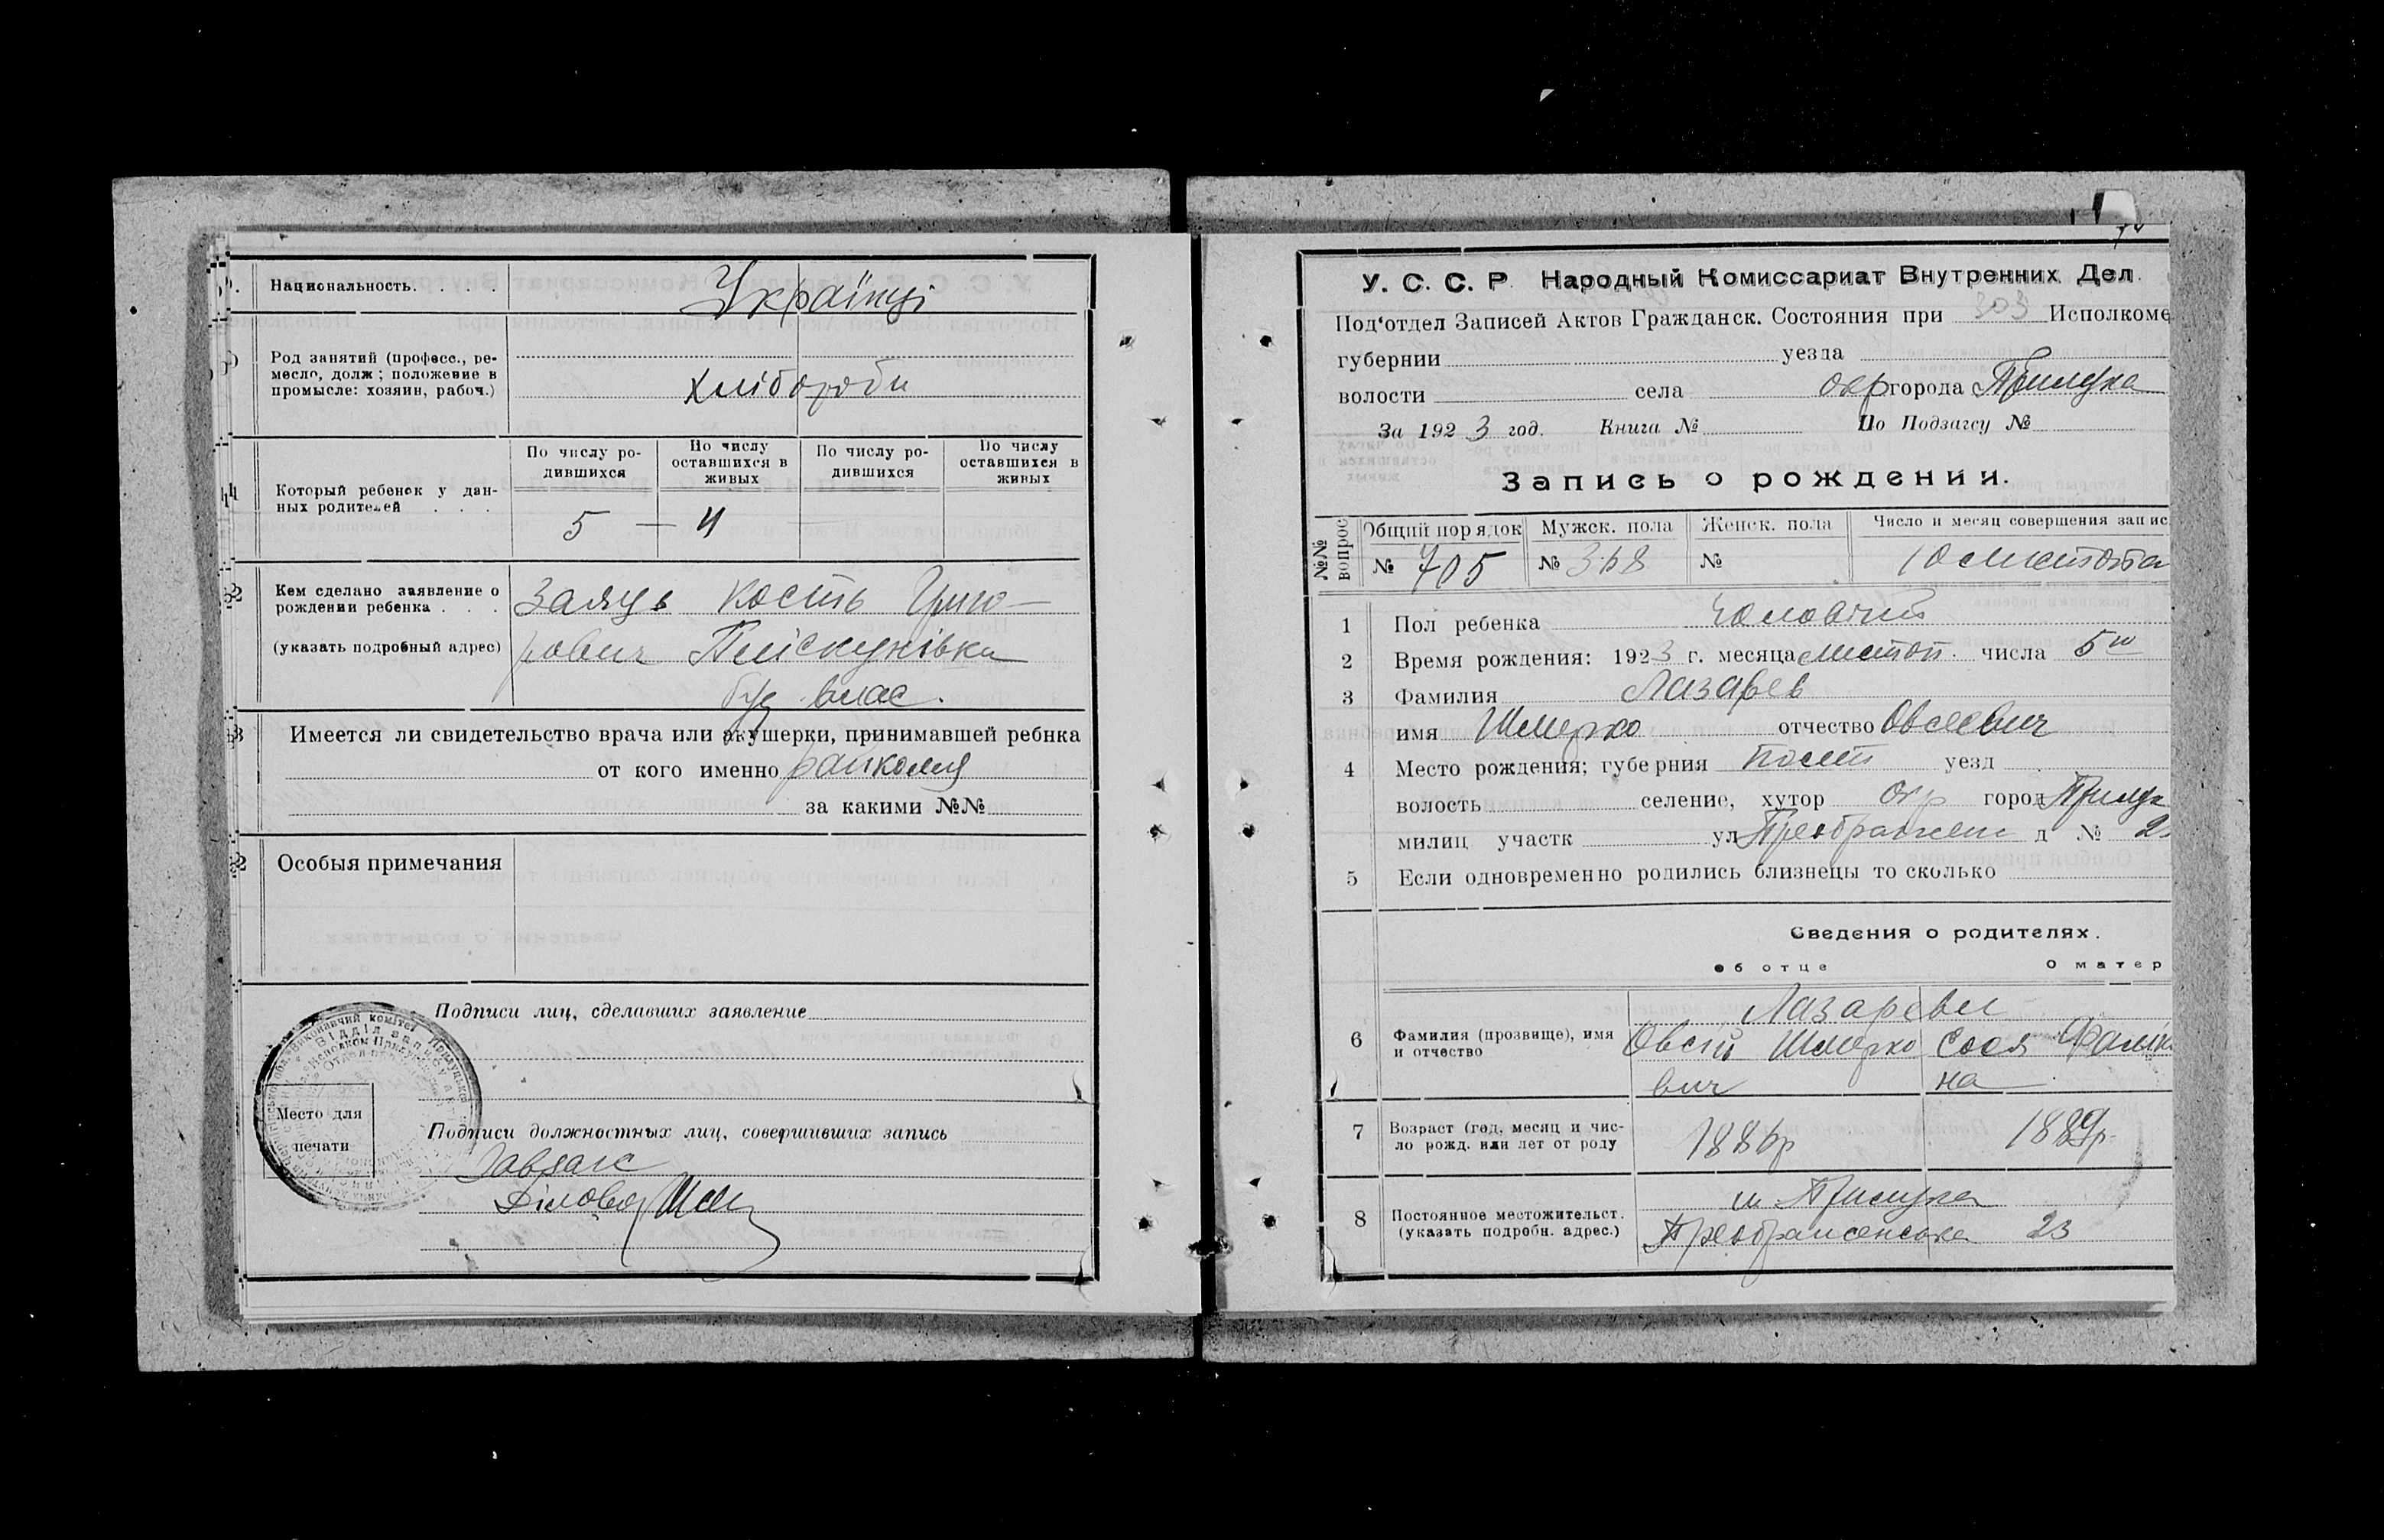 Национальность. . . .
Українці
Род занятий (професс., ре-
месло, долж; положение в
промысле: хозяин, рабоч.)
хлібороби
Который ребенок у дан-
ных родителей . . .
По числу ро-
дившихся
По числу
оставшихся в
живых
По числу ро-
дившихся
По числу
оставшихся в
живых
5 — 4
Кем сделано заявление о
рождении ребенка . . .
(указать подробный адрес)
Заяць Кость Григо-
рович Пліскунівка
буд. влас.
Имеется ли свидетельство врача или акушерки, принимавшей ребнка
от кого именно райкома
за какими №№
Особыя примечания
Подписи лиц, сделавших заявление
Место для
печати
Подписи должностных лиц, совершивших запись
Завзагс
Діловод
У. С. С. Р Народный Комиссариат Внутренних Дел.
Под‘отдел Записей Актов Гражданск. Состояния при 303 Исполкоме
губернии уезда
волости села окр города Прилука
За 1923 год. Книга № По Подзагсу №
Запись о рождении.
№№ вопрос
Общий порядок
Мужск. пола
Женск. пола
Число и месяц совершения запис
№ 705 № 368 № 10 листопа
1 Пол ребенка Чоловічий
2 Время рождения: 1923 г. месяца листоп. числа 5го
3 Фамилия Лазарев
имя Шмерко отчество Овсеевич
4 Место рождения; губерния Полт уезд
волость селение, хутор окр город Прилук
милиц участк ул Преображен д № 2
5 Если одновременно родились близнецы то сколько
Сведения о родителях.
об отце о матер
6 Фамилия (прозвище), имя
и отчество
Лазареви
Овсій Шмерко
вич
Сося
на
7 Возраст (год, месяц и чис-
ло рожд. или лет от роду
1886р 1889р.
8 Постоянное местожительст.
(указать подробн. адрес.)
м Прилука
Преображенська 23